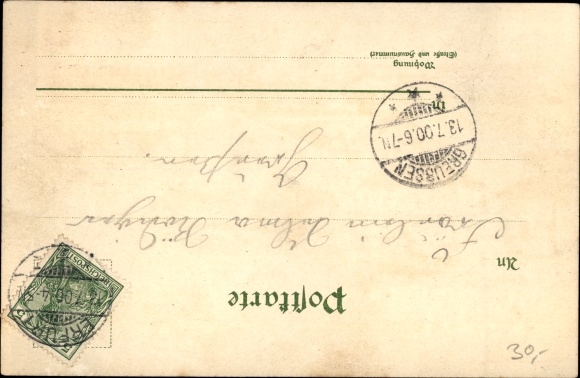 Postkarte
An
Fräulein Selma
Greußen.
in
Wohnung
(Straße und Hausnummer)
GREUSSEN
13.7.00.6-7N.
ERFURT
REICHSPOST
30,-